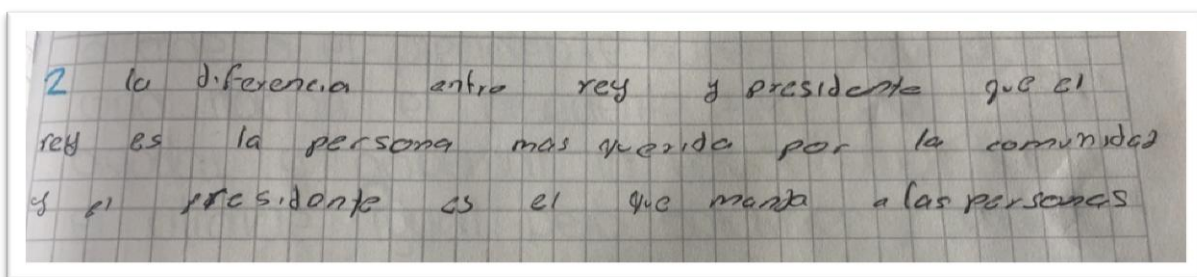 2 la diferencia entre rey y presidente que el
rey es la persona mas querida por la comunidad
y el presidante es el que manda a las personas